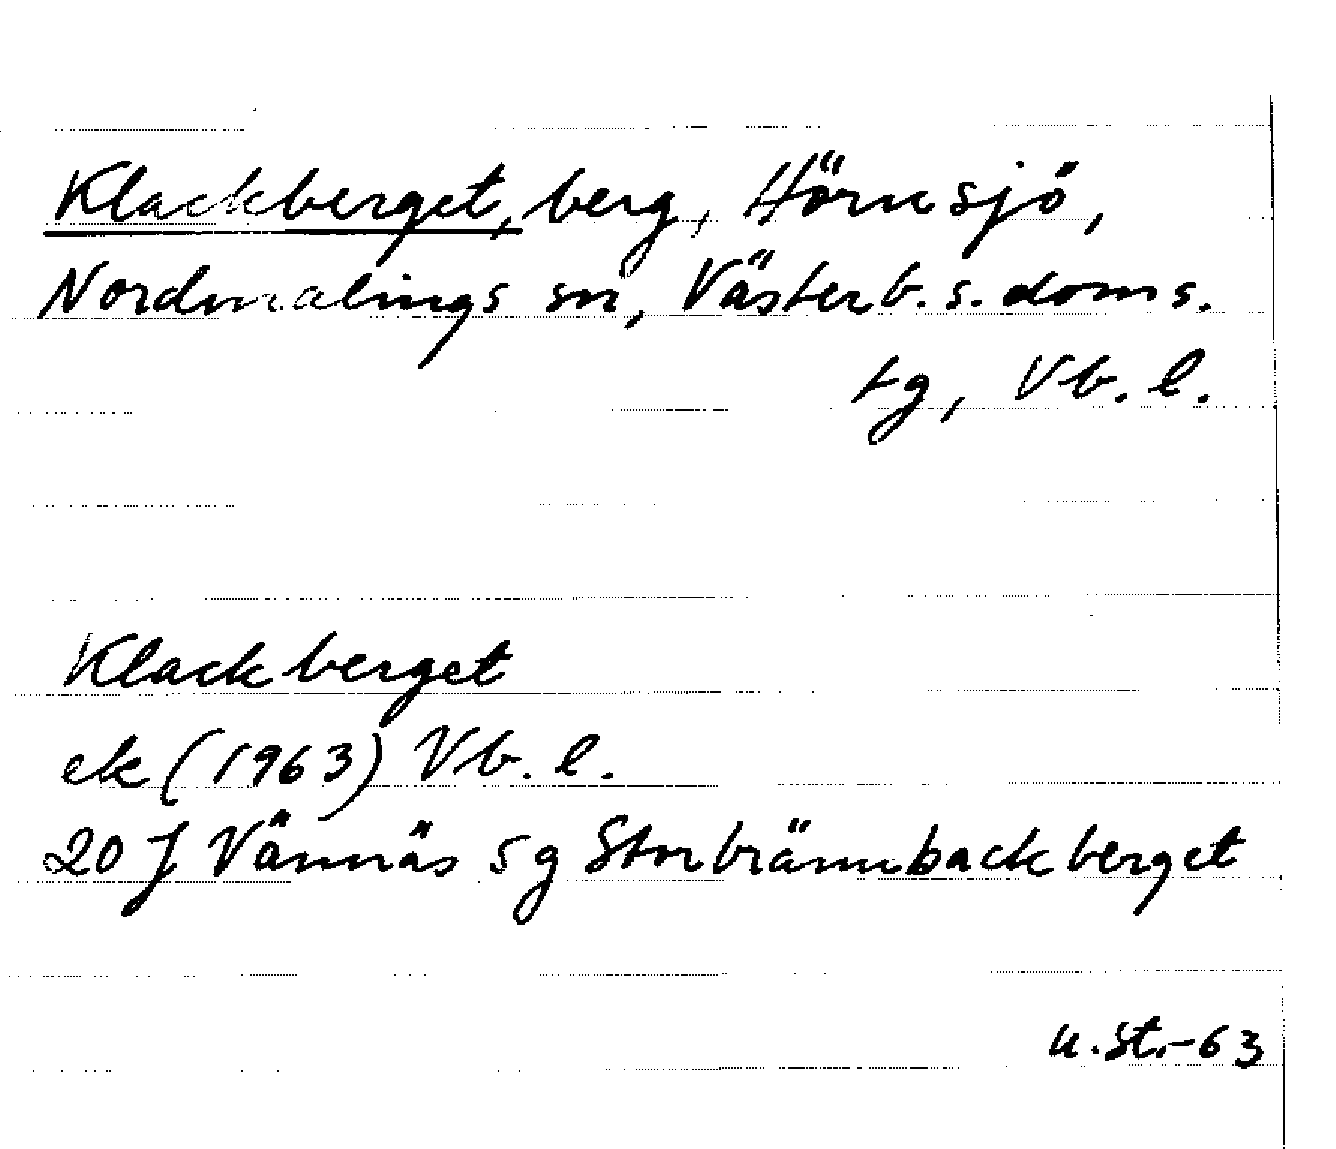 Klackberget, berg, Hörnsjö,
Nordmalings sn, Västerb. s. doms.
tg, Vb. l.
Klackberget
ek (1963) Vb. l.
20 J Vännäs 5 g Storbrännbackberget
U. St. -63